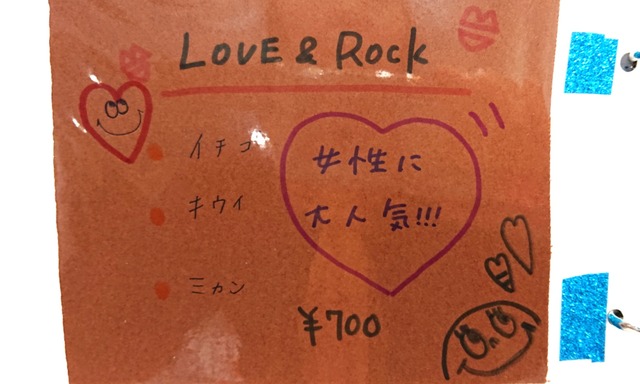 LOVE & ROCK
イチゴ
キウイ
ミカン
女性に
大人気!!!
¥700